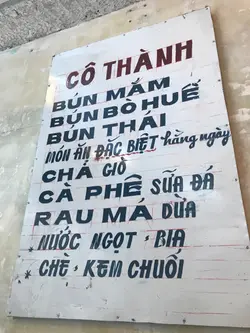 CÔ THÀNH
BÚN MẮM
BÚN BÒ HUẾ
BÚN THÁI
MÓN ĂN ĐẶC BIỆT hằng ngày
CHẢ GIÒ
CÀ PHÊ SỮA ĐÁ
RAU MÁ DỪA
NƯỚC NGỌT · BIA
CHÈ · KEM CHUỐI